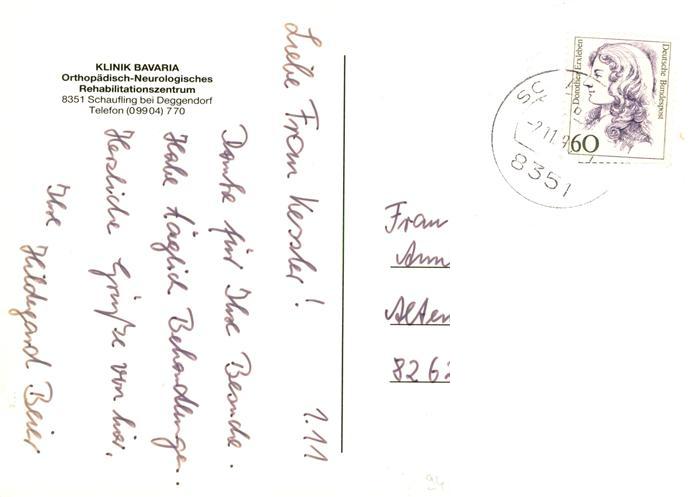 KLINIK BAVARIA
Orthopädisch-Neurologisches
Rehabilitationszentrum
8351 Schaufling bei Deggendorf
Telefon (09904) 770
1.11
Liebe Frau Kessler!
Danke für Ihre Besuche.
Habe täglich Behandlungen.
Herzliche Grüße von hier,
Ihre
Hildegard Beier
Deutsche Bundespost
Dorothea Erxleben
60
8351
Frau
Ann
Alten
826